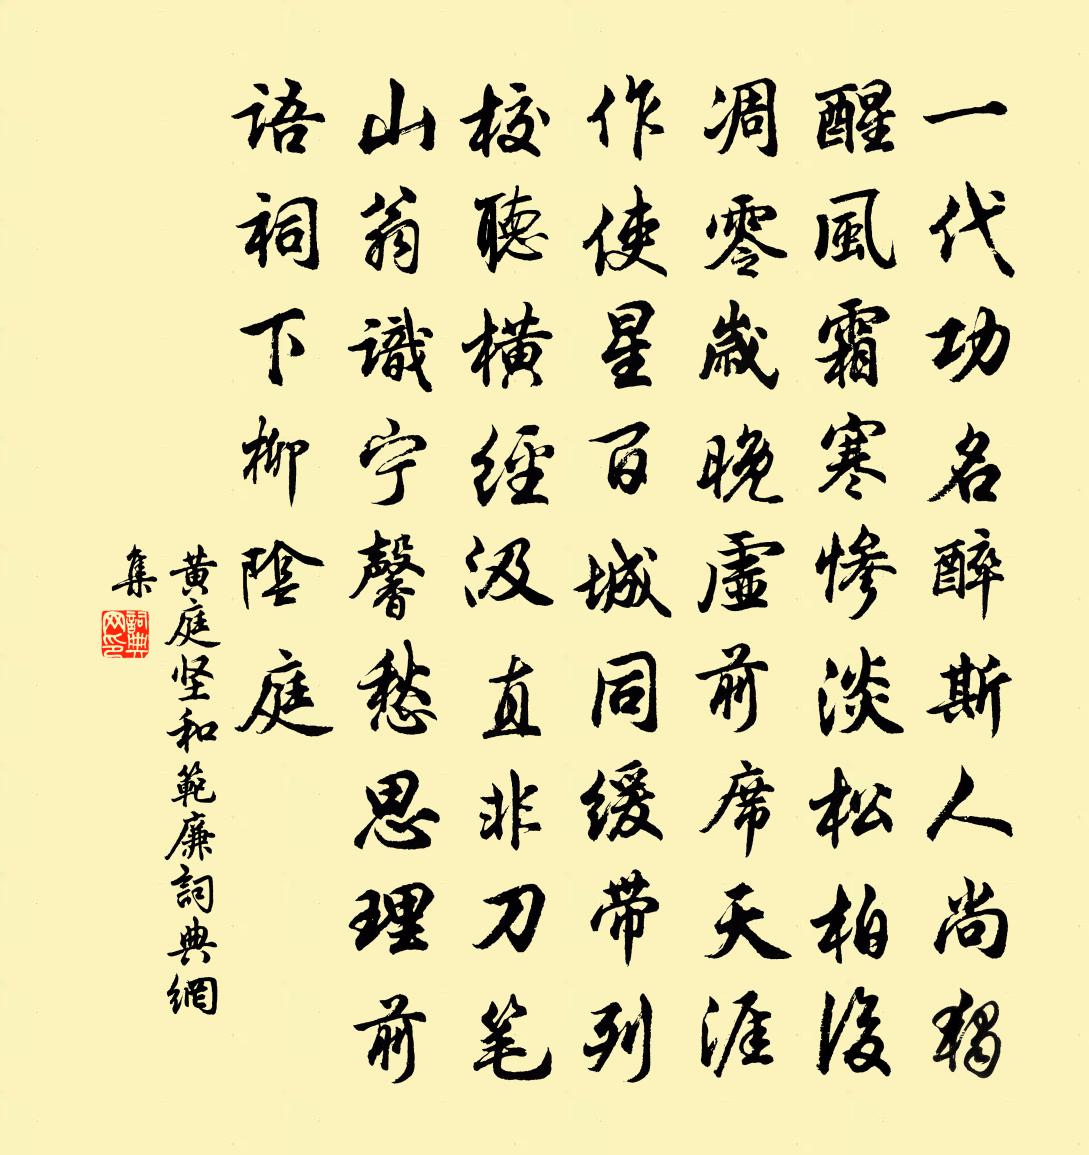 一代功名醉斯人尚獨
醒風霜寒慘淡松柏後
凋零歲晚虛前席天涯
作使星百城同缓带列
校聽橫經汲直非刀笔
山翁識宁馨愁思理前
语祠下柳陰庭
黄庭坚和範廉詞典網
集
詞典網印